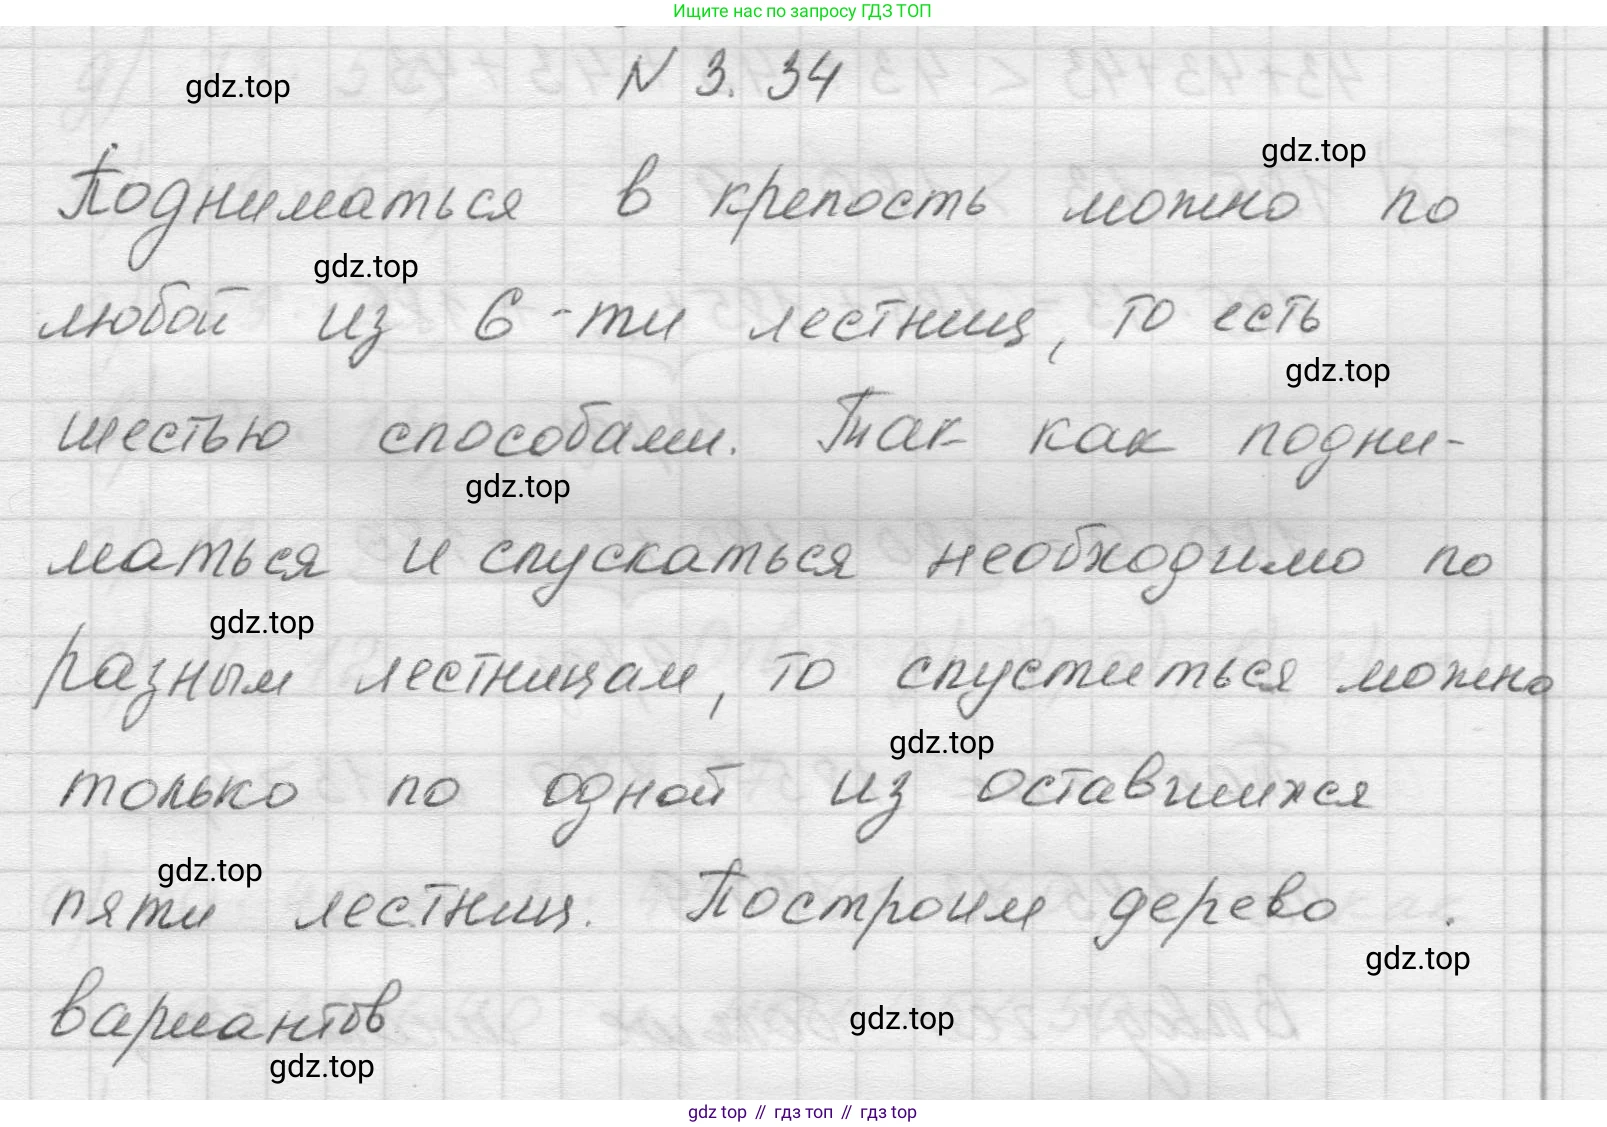 Ищите нас по запросу ГДЗ ТОП
N 3. 34
gdz.top
gdz.top
Подниматься в крепость можно по
gdz.top
любой из 6-ти лестниц, то есть
gdz.top
шестью способами. Так как подни-
gdz.top
маться и спускаться необходимо по
gdz.top
разным лестницам, то спуститься можно
gdz.top
только по одной из оставшихся
gdz.top
пяти лестниц. Построим дерево
gdz.top
вариантов
gdz.top
gdz.top
gdz top // гдз топ // гдз top